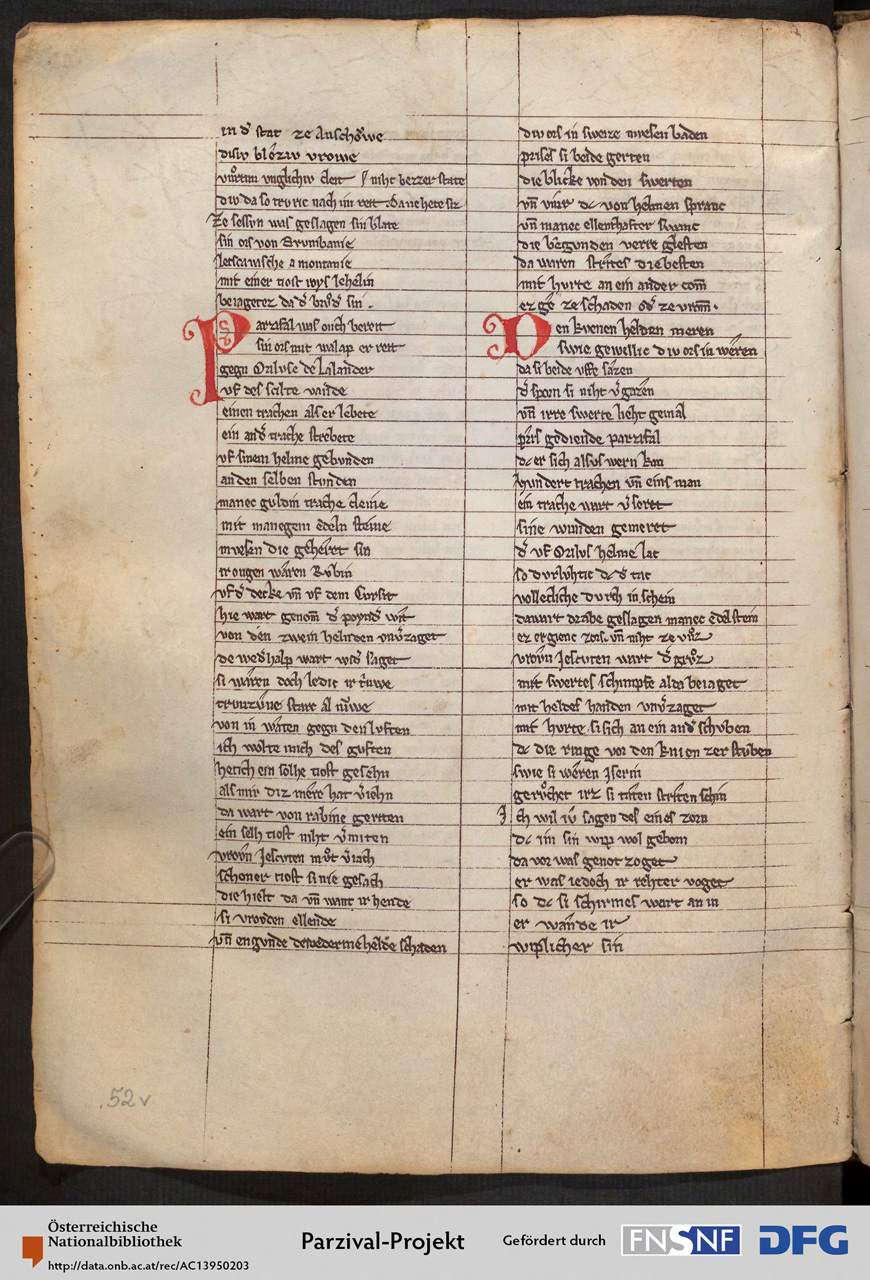 in dˢ stat ze Anschoͮwe
disiv bloͤziv vrowe
vuͦrtim vnglichiv cleit / niht bezzer state
div da so trvric nach im reit . Da ne hete siz
Ze sessvn was geslagen sin blate
sin ors von Brvmbanie
de salvasche a montanie
mit einer tiost roys lehelin
beiagetez da dˢ brvͦdˢ sin .
Parzifal was ouch bereit
sin ors mit walap er reit
gegn Orilvse de Lalander
vf des scilte vander
einen trachen als er lebete
ein andˢ trache strebete
vf sinem helme gebvnden
an den selben stvnden
manec gvldin trache cleine
mit manegem edeln steine
mvesen die geheret sin
ir ougen waren Rvbin
vf dˢ decke vn̄ vf dem Cvrsit
hie wart genom̄ dˢ poyndˢ wit
von den zwein heliden vnvˢzaget
dewedˢhalp wart widˢ saget
si waren doch ledic ir trͥwe
trvnzvne starc al nͥwe
von in wæten gegn den lvften
ich wolte mich des gvften
het ich ein solhe tiost gesehn
als mir diz mere hat vˢiehn
da wart von rabine geriten
ein selh tiost niht vˢmiten
vroͮn Jescvten mvͦt vˢiach
schoner tiost si nie gesach
die hielt da vn̄ want ir hende
si vroͮden ellende
vn̄ engvnde deweder̄me helde schaden
div ors in sweize mvesen baden
prises si beide gerten
die blicke von den swerten
vn̄ viur dc von helmen spranc
vn̄ manec ellenthafter swanc
die begvnden verre glesten
da waren strites die besten
mit hvrte an ein ander com̄
ez ge ze schaden odˢ ze vrom̄ .
Den kvenen helden meren
swie gewillic div ors in weren
da si beide vffe sazen
dˢ sporn si niht vˢgazen
vn̄ irre swerte lieht gemal
pris gediende parzifal
dc er sich alsvs wern kan
hvndert trachen vn̄ eins man
ein trache wart vˢseret
sine wunden gemeret
dˢ vf Orilvs helme lac
so dvrlvhtic dc dˢ tac
volleclliche dvrch in schein
da wart drabe geslagen manec edel stein
ez ergienc zors vn̄ niht ze vuͦz
vroͮn Jescvten wart dˢ grvͦz
mit swertes schimpfe alda beiaget
mit heldes handen vnvˢzaget
mit hvrte si sich an ein andˢ schvben
dc die ringe vor den knien zerstvben
swie si weren Jserin
gervͦchet irz si taten striten schin
Jch wil iv̄ sagen des eines zorn
dc im sin wip wol geborn
da vor was genotzoget
er was iedoch ir rehter voget
so dc si schirmes wart an in
er wande ir
wiplicher sin
52v
Österreichische
Nationalbibliothek
http://data.onb.ac.at/rec/AC13950203
Parzival-Projekt
Gefördert durch
FNSNF
DFG